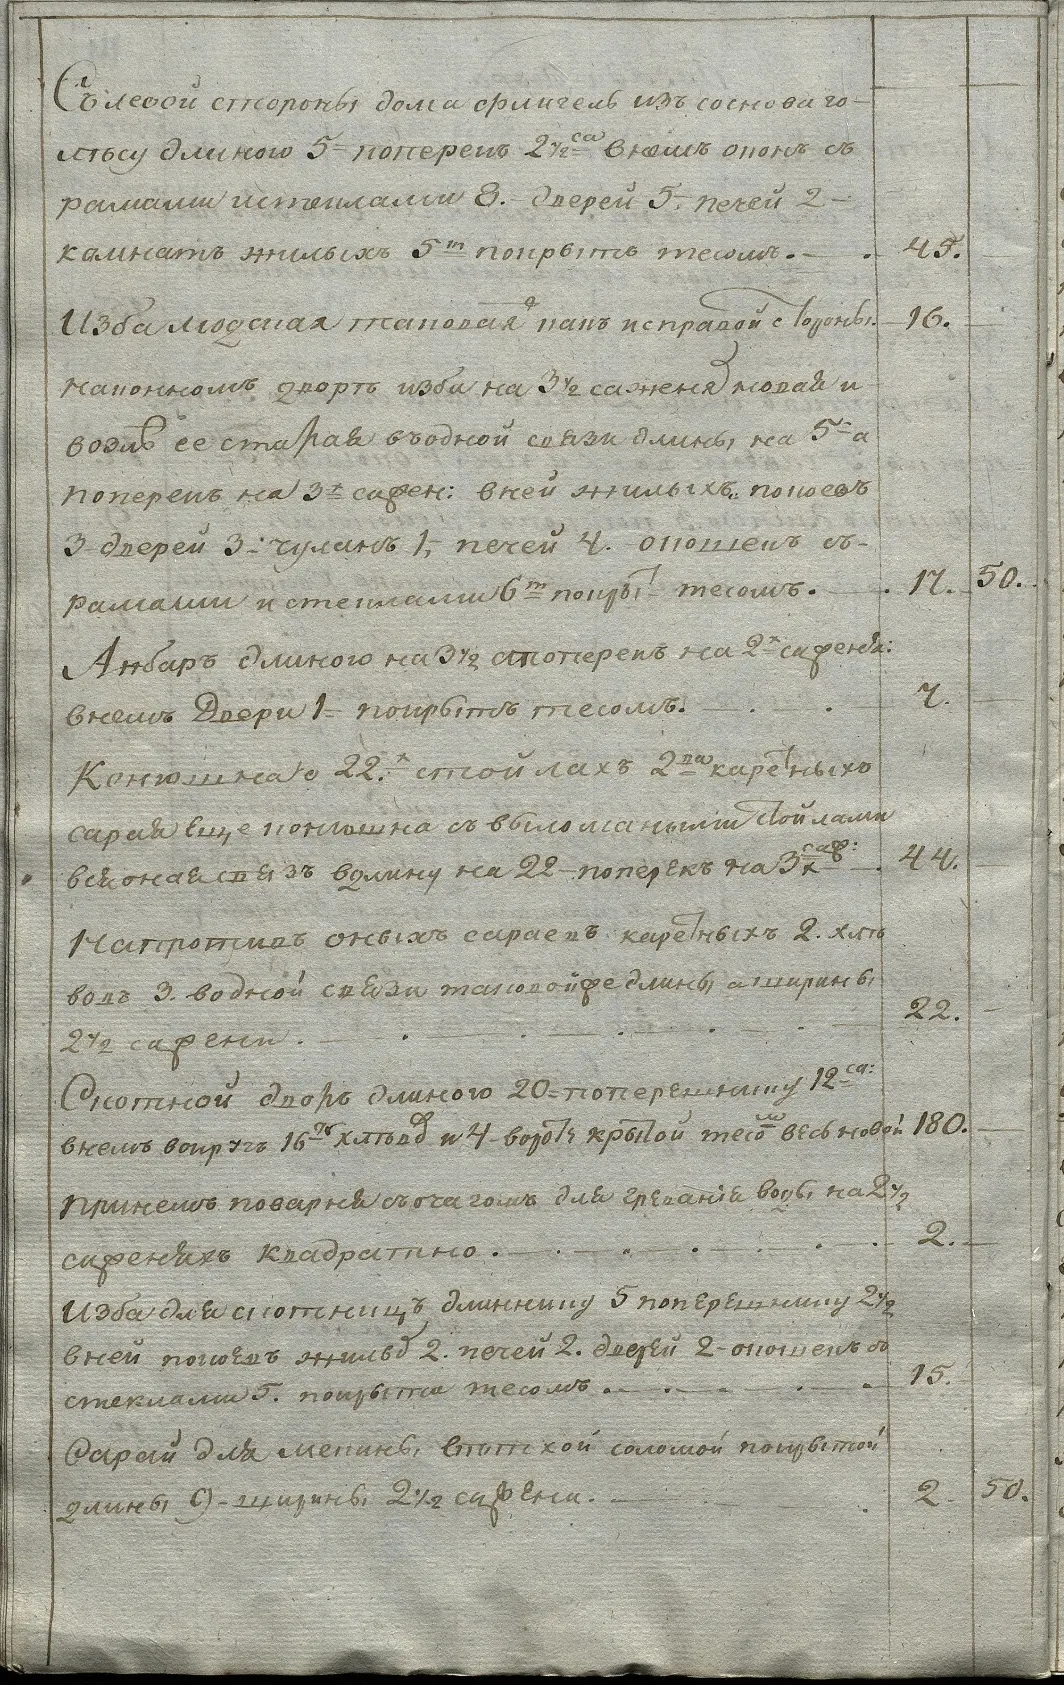 Съ левой стороны дома флигель изъ сосноваго
лѣсу длиною 5 поперекъ 2 1/2 са внемъ оконъ съ
рамами истеклами 8. дверей 5. печей 2
комнатъ жилыхъ 5т покрытъ тесомъ. 45.
Изба людская таковая какъ исправой стороны. 16.
наконномъ дворѣ изба на 3 1/2 саженя новая и
возлѣ ее старая въодной связи длины на 5 а
поперекъ на 3х сажен: вней жилыхъ покоевъ
3 дверей 3. чуланъ 1, печей 4. окошекъ съ
рамами истеклами 6т покрыт тесомъ. 17. 50.
Анбаръ длиною на 3 1/2 апоперекъ на 2х саженя:
внемъ Двери 1 покрытъ тесомъ. 7.
Конюшна о 22.х стойлахъ 2ва каретныхъ
сарая еще конюшна съ выломаными стойлами
вся оная связь вдлину на 22 поперекъ на 3х саж: 44.
Напротивъ оныхъ сараевъ каретныхъ 2. хлѣ
вовъ 3. водной связи таковойже длины а ширины
2 1/2 сажени. 22.
Скотной дворъ длиною 20 поперешнику 12 са:
внемъ вокругъ 16ть хлѣвовъ и 4 воротъ крытой тесом весь новой 180.
принемъ поварня съочагомъ для греванія воды на 2 1/2
саженяхъ квадратно. 2.
Изба для скотницъ длиннику 5 поперешнику 2 1/2
вней покоевъ жилыхъ 2. печей 2. дверей 2 окошекъ съ
стеклами 5. покрыта тесомъ. 15.
Сарай для мекины ветхой соломой покрытой
длины 9 ширины 2 1/2 сажени. 2. 50.